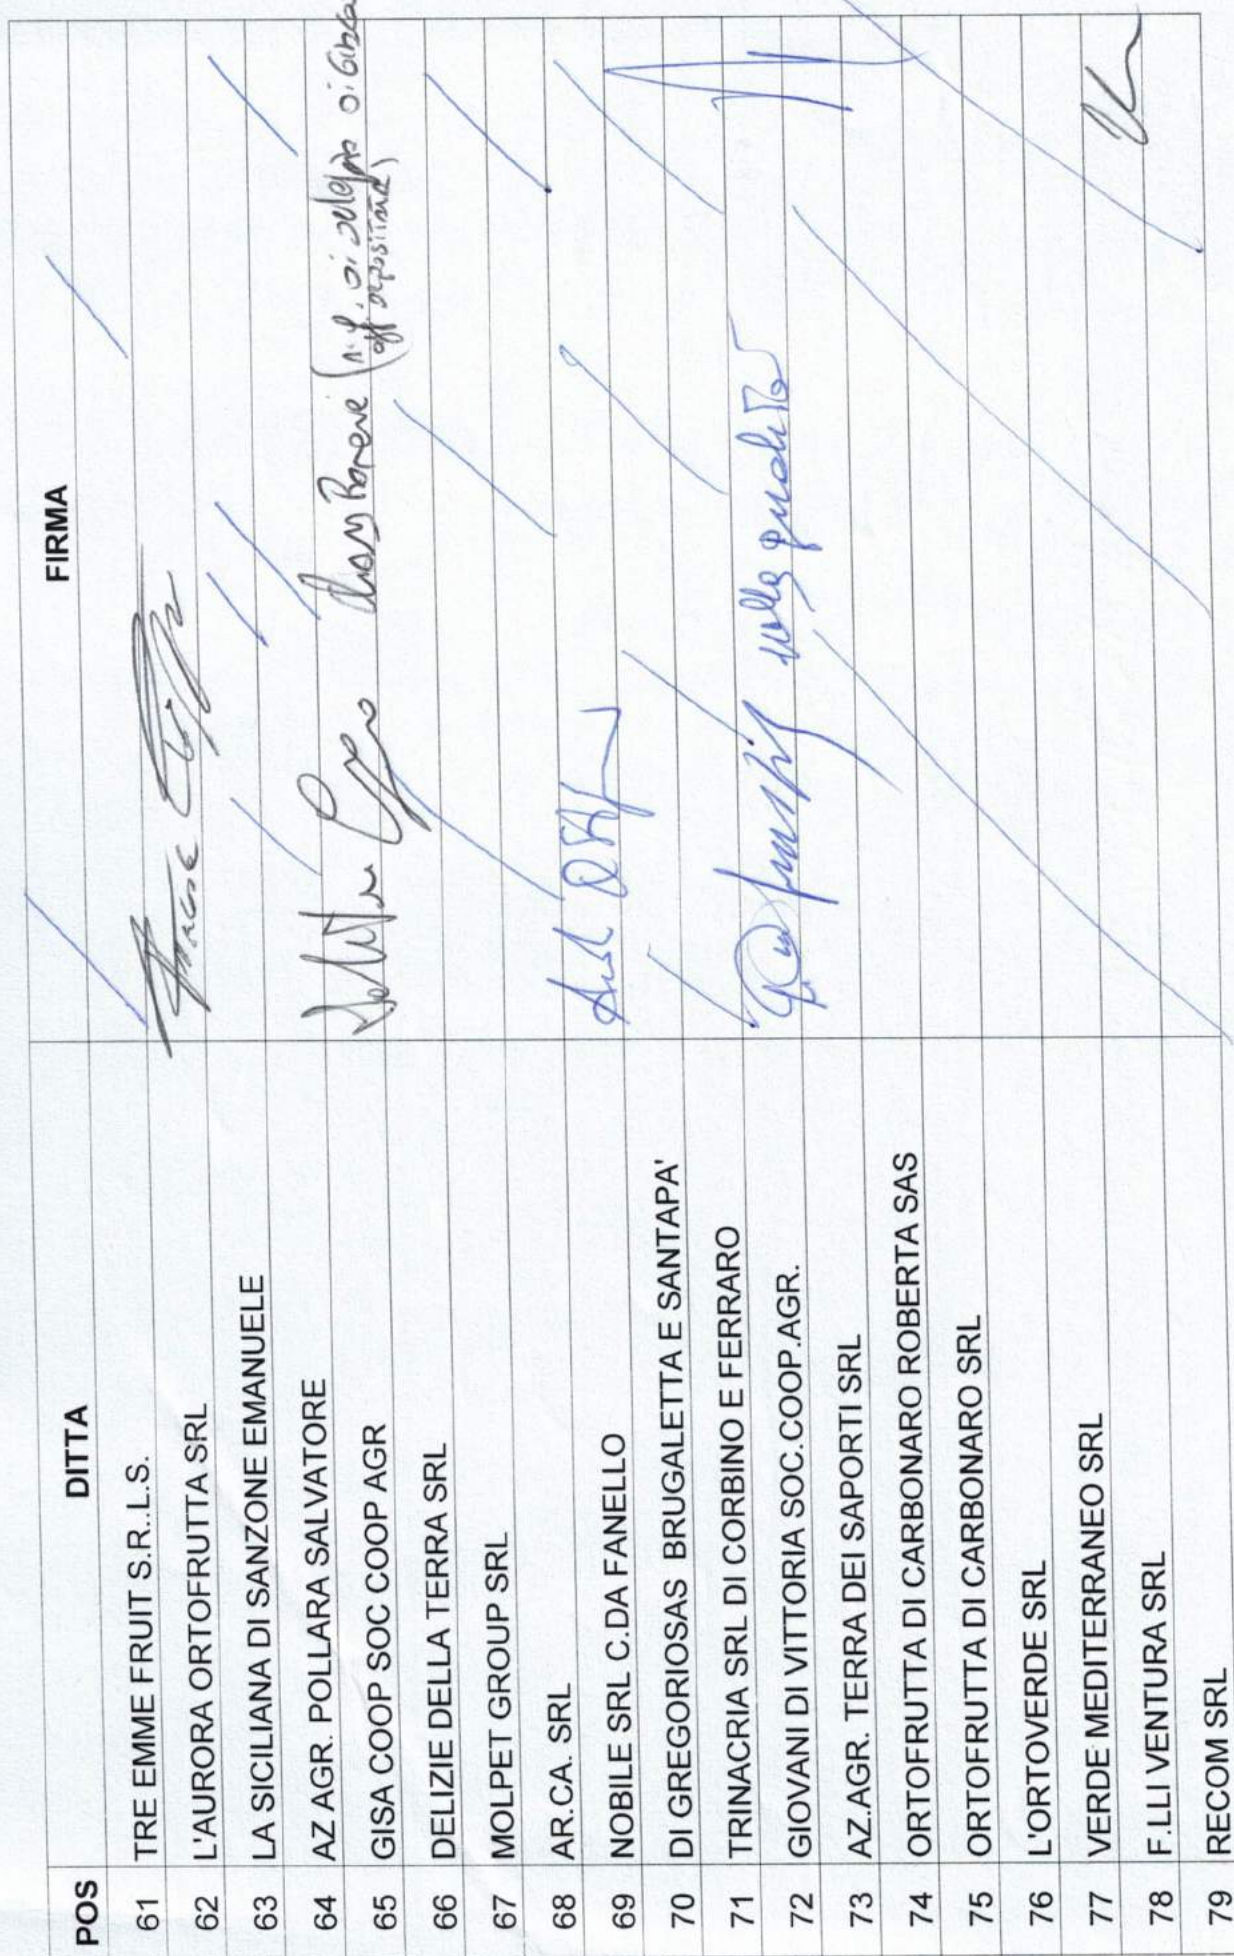 POS DITTA FIRMA
61 TRE EMME FRUIT S.R..L.S.
62 L'AURORA ORTOFRUTTA SRL
63 LA SICILIANA DI SANZONE EMANUELE
64 AZ AGR. POLLARA SALVATORE
65 GISA COOP SOC COOP AGR
66 DELIZIE DELLA TERRA SRL
67 MOLPET GROUP SRL
68 AR.CA. SRL
69 NOBILE SRL C.DA FANELLO
70 DI GREGORIOSAS BRUGALETTA E SANTAPA'
71 TRINACRIA SRL DI CORBINO E FERRARO
72 GIOVANI DI VITTORIA SOC.COOP.AGR.
73 AZ.AGR. TERRA DEI SAPORTI SRL
74 ORTOFRUTTA DI CARBONARO ROBERTA SAS
75 ORTOFRUTTA DI CARBONARO SRL
76 L'ORTOVERDE SRL
77 VERDE MEDITERRANEO SRL
78 F.LLI VENTURA SRL
79 RECOM SRL